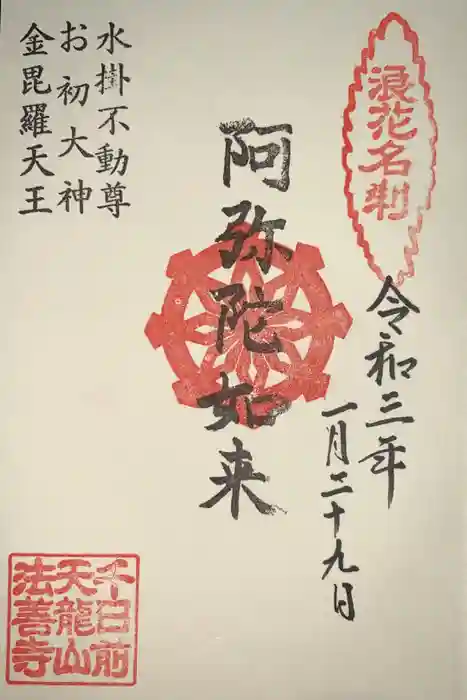 浪花名刹
令和三年
一月二十九日
阿弥陀如来
水掛不動尊
お初大神
金毘羅天王
千日前
天龍山
法善寺